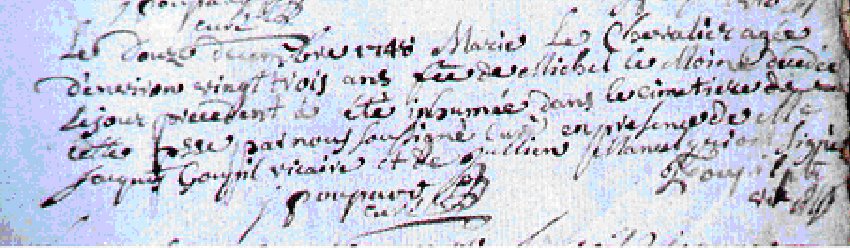 curé
Le douze decembre 1748 Marie Le Chevalier agée
d'environ vingt trois ans fe de Michel le Moine decedée
le jour precedent a eté inhumée dans le cimetiere de
cette par nous soussigné curé en presence de Me
Jacques Goupil vicaire et de Jullien qui ont signé
J poupard Goupil
curé